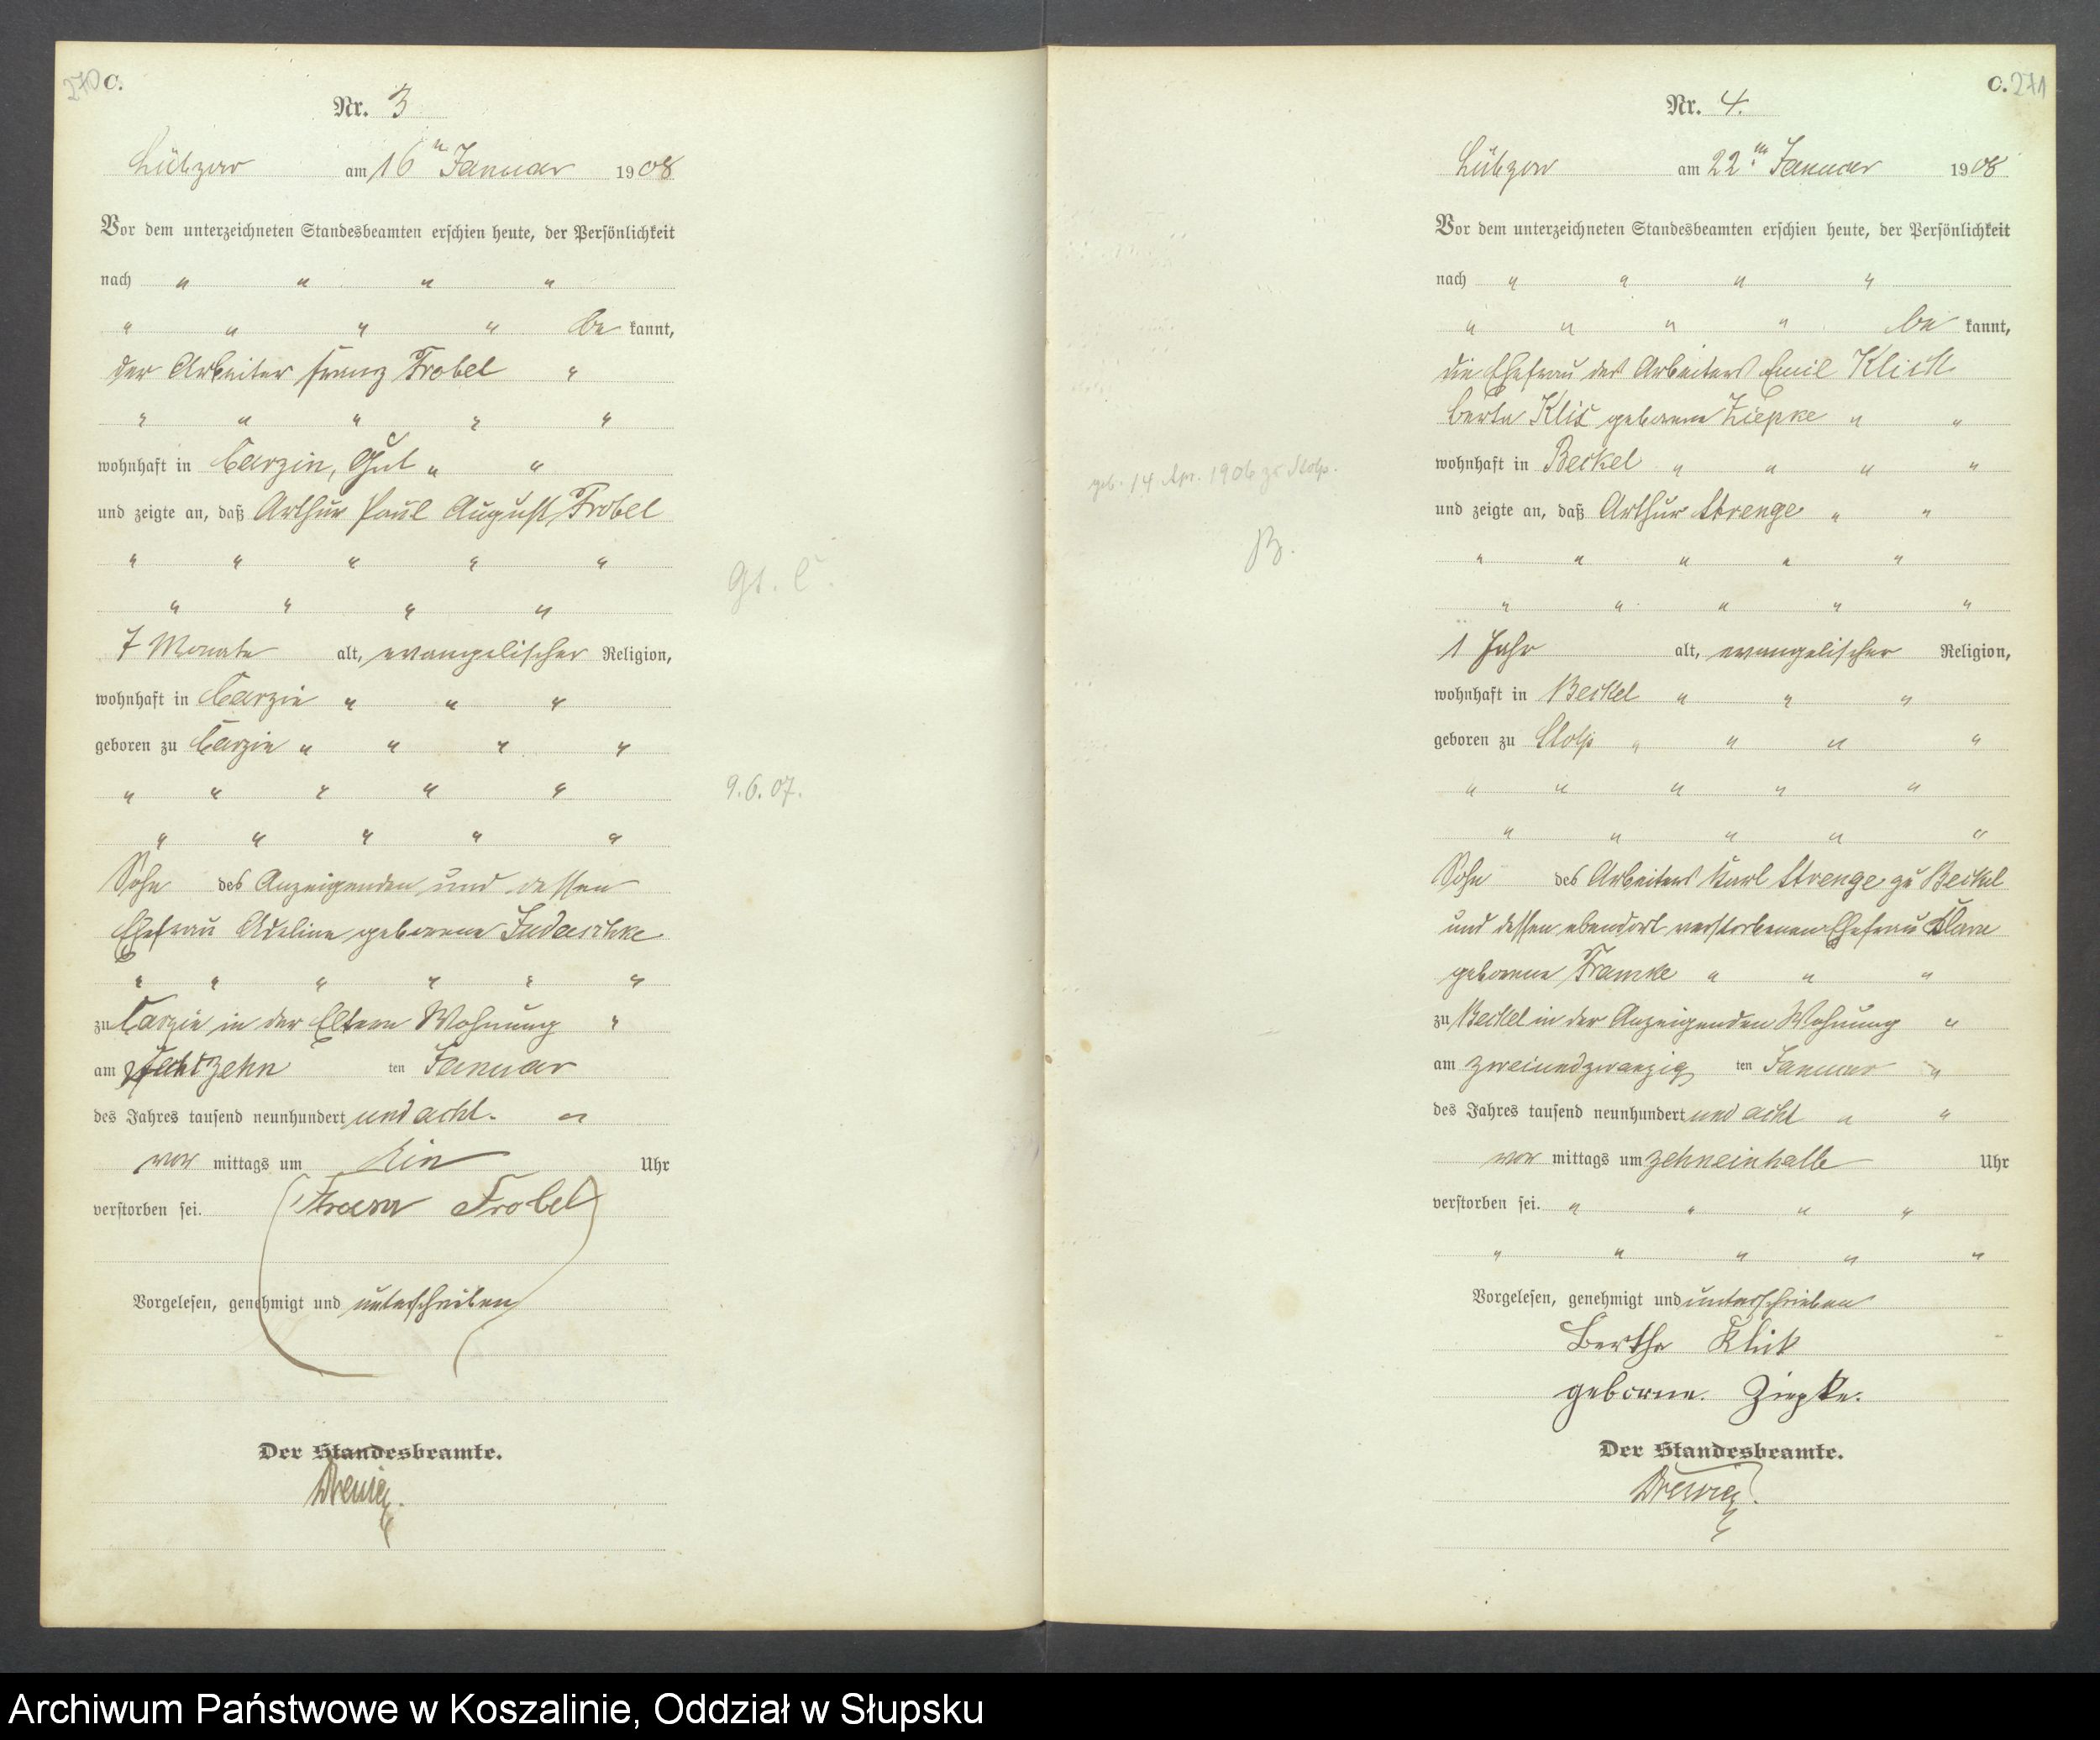 270 C.
Nr. 3
Lübzow am 16ten Januar 1908
Vor dem unterzeichneten Standesbeamten erschien heute, der Persönlichkeit
nach " " " "
" " " " be kannt,
der Arbeiter Franz Trobel "
" " " " "
wohnhaft in Carzin, Gut " "
und zeigte an, daß Arthur Paul August Trobel
" " " " "
" " " "
7 Monate alt, evangelischer Religion,
wohnhaft in Carzin " " "
geboren zu Carzin " " " "
" " " " "
" " " " "
Sohn des Anzeigenden und dessen
Ehefrau Adeline geborene Judaschke
" " " " " "
zu Carzin in der Eltern Wohnung "
am zehn ten Januar
des Jahres tausend neunhundert und acht. "
vor mittags um Ein Uhr
verstorben sei. Trobel
Vorgelesen, genehmigt und unterschrieben
Der Standesbeamte.
Gt. C.
9.6.07.
C. 271
Nr. 4.
Lübzow am 22ten Januar 1908
Vor dem unterzeichneten Standesbeamten erschien heute, der Persönlichkeit
nach " " " "
" " " " be kannt,
die Ehefrau des Arbeiters Emil Klick
Berta Klick geborene Ziepke " "
wohnhaft in Beckel " " " "
und zeigte an, daß Arthur Strenge " "
" " " " "
" " " " "
1 Jahr alt, evangelischer Religion,
wohnhaft in Beckel " " "
geboren zu Stolp " " " "
" " " " "
" " " " "
Sohn des Arbeiters Karl Strenge zu Beckel
und dessen ebendort verstorbenen Ehefrau Klara
geborene Framke " " "
zu Beckel in der Anzeigenden Wohnung "
am zweiundzwanzig ten Januar "
des Jahres tausend neunhundert und acht " "
vor mittags um zehneinhalb Uhr
verstorben sei. " " " "
" " " " "
Vorgelesen, genehmigt und unterschrieben
Bertha Klick
geborne. Ziepke.
Der Standesbeamte.
geb. 14. Apr. 1906 zu Stolp.
B.
Archiwum Państwowe w Koszalinie, Oddział w Słupsku